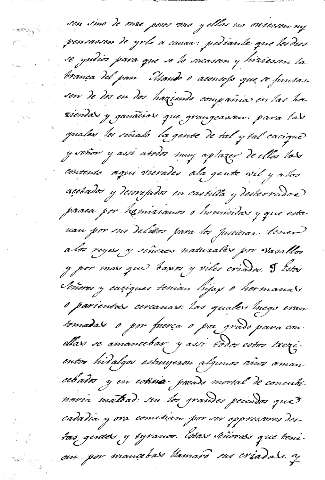 sen sino de mas peones y ellos no oviesen ny
pensassen de yrlo a cavar; pidiendole que les diese
yndios para que se lo sacasen y hiziesen la
brança del pan. Mando o aconsejo que se juntas
sen de dos en dos haziendo compañia en las ha
ziendas y ganançias que grangeassen para los
quales les señalo la gente de tal y tal caçique
y señor y assi a todos muy a plazer de ellos los
contento aqui verades a la gente vil y a los
açotados y desorejados en castilla y desterrados
para aca por homizianos o homiçidas y que esta
uan por sus delitos para los justiciar tener
a los reyes y señores naturales por vasallos
y por mas que baxos y viles criados. Estos
señores y caziques tenian hijas o hermanas
o parientas cercanas las quales luego eran
tomadas o por fuerça o por grado para con
ellas se amancebar y assi todos estos trezi
entos hidalgos estuvieron algunos años aman
cebados y en continuo pecado mortal de concubi
naria maldad sin los grandes pecados que
cada dia y ora cometian por ser oppressores des
tas gentes y tyranos. Estas señoras que teni
an por mancebas llamavan sus criadas. y